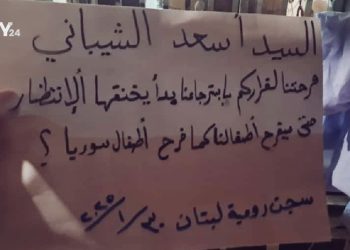 Y24
السيد أسعد الشيباني
فرحتنا لقراركم بإسترجاعنا بدأ يخنقها الإنتظار
متى سيفرح أطفالنا كما فرح أطفال سوريا ؟
سجن رومية لبنان ٣٠/١/٢٠٢٥